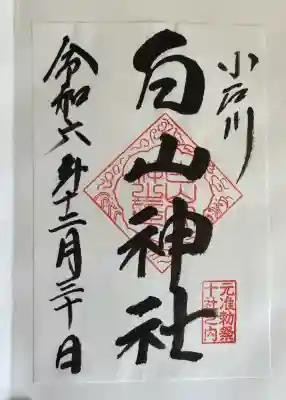 小石川
白山神社
元准勅祭
十社之内
令和六年十二月三十日